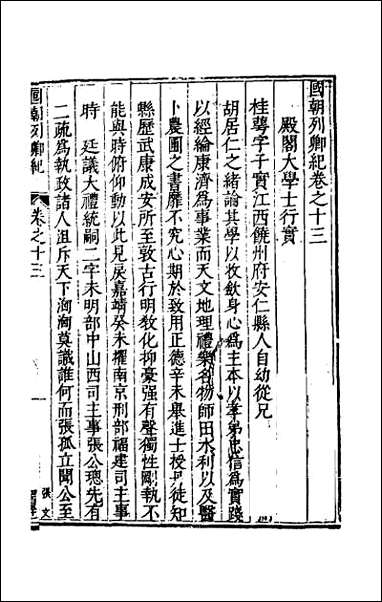 國朝列卿紀卷之十三
殿閣大學士行實
桂萼字子實江西饒州府安仁縣人自幼從兄
胡居仁之緒論其學以收歛身心爲主本以孝弟忠信爲實踐
以經綸康濟爲事業而天文地理禮樂名物師田水利以及醫
卜農圃之書靡不究心期於致用正德辛未舉進士授丹徒知
縣歷武康成安所至敦古行明教化抑豪强有聲獨性剛執不
能與時俯仰動以此見戾嘉靖癸未擢南京刑部福建司主事
時 廷議大禮統嗣二字未明部中山西司主事張公璁先有
二疏爲執政諸人沮斥天下洶洶莫識誰何而張孤立聞公至
國朝列卿紀
卷之十三
張文